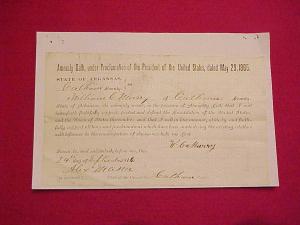 Amnesty Oath, under Proclamation of the President of the United States, dated May 29, 1865.
STATE OF ARKANSAS,
Calhoun County
William C. of Calhoun County
State of Arkansas, do solemnly swear in the presence of Almighty God, that I will
henceforth faithfully support, protect and defend the Constitution of the United States
and the Union of States thereunder, and that I will in like manner, abide by and faith-
fully support all laws and proclamations which have been made during the existing rebellion
with reference to the emancipation of slaves. So help me God.
W. C.
Sworn to and subscribed before me, this
24th day of
Calhoun